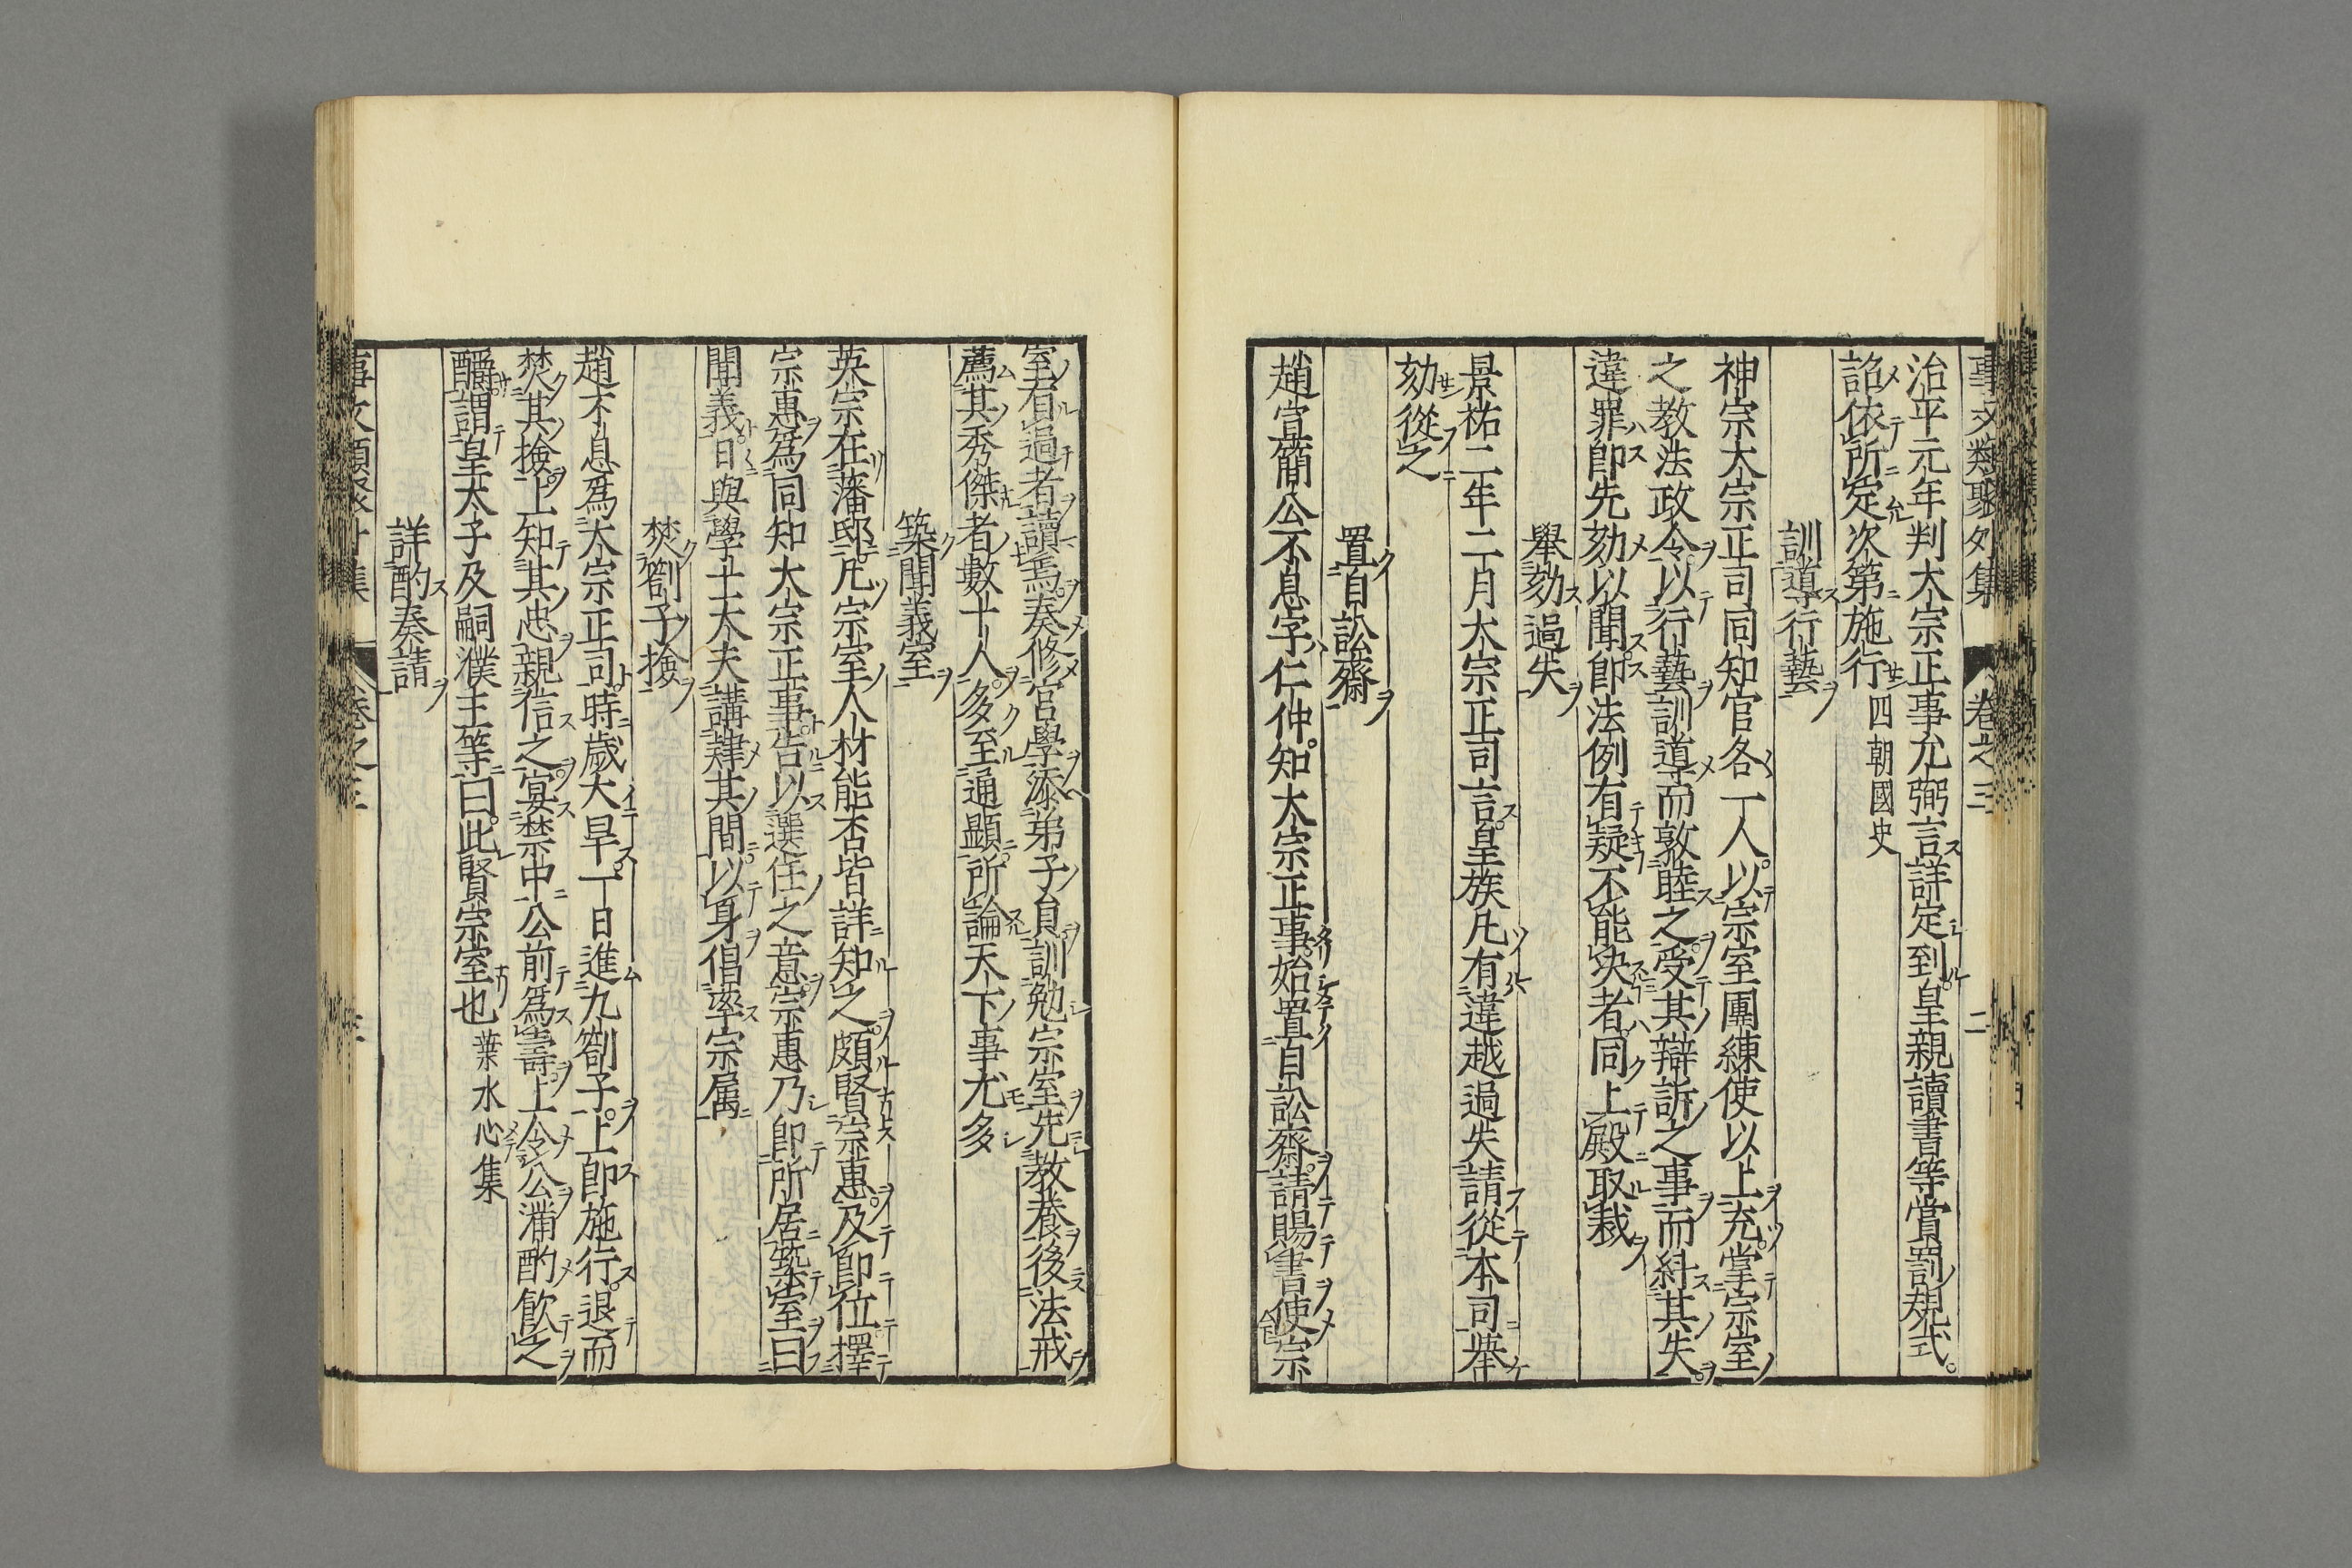 事文類聚外集 卷之三 二
治平元年判大宗正事允弼言詳定到皇親讀書等賞罰規式
詔依所定次第施行 四朝國史
訓導行藝
神宗大宗正司同知官各一人以宗室團練使以上充掌宗室
之教法政令以行藝訓導而敦睦之受其辯訴之事而糾其失
違罪卽先劾以聞卽法例有疑不能決者同上殿取裁
舉劾過失
景祐二年二月大宗正司言皇族凡有違越過失請從本司舉
劾從之
置自訟齋
趙宣簡公不息字仁仲知大宗正事始置自訟齋請賜書使宗
室有過者讀焉奏修宮學添弟子員訓勉宗室先教養後法戒
薦其秀傑者數十人多至通顯所論天下事尤多
築聞義室
英宗在藩邸凡宗室人材能否皆詳知之頗賢宗惠及卽位擇
宗惠爲同知大宗正事告以選任之意宗惠乃卽所居築室曰
聞義日與學士大夫講肄其間以身倡率宗属
焚劄子撿
趙不息爲大宗正司時歲大旱一日進九劄子上卽施行退而
焚其撿上知其忠親信之宴禁中公前爲壽上令公滿酌飮之
釂謂皇太子及嗣濮王等曰此賢宗室也 葉水心集
詳酌奏請